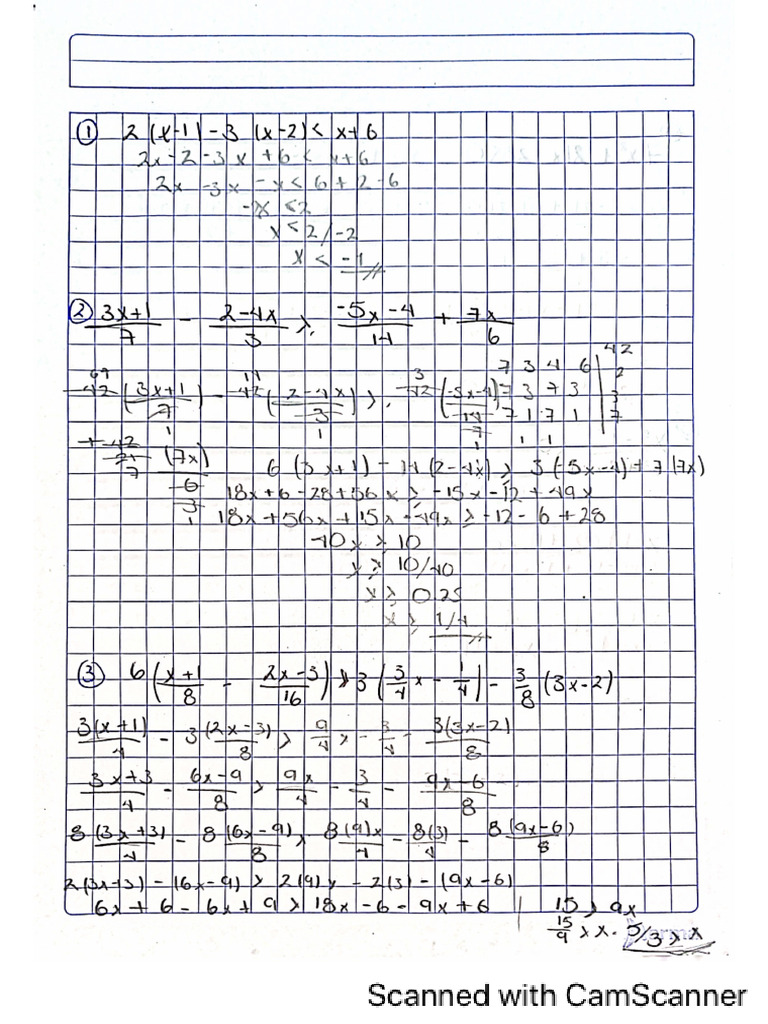 ① 2 (x-1) - 3 (x-2) < x+6
2x - 2 - 3x + 6 < x+6
2x - 3x - x < 6 + 2 - 6
-x < 2
x < 2/-2
x < -1
② 3x+1/7 - 2-4x/3 ≥ -5x-4/14 + 7x/6
7 3 4 6 | 42
7 3 7 3 | 2
7 1 7 1 | 3
1 1 | 7
42 (3x+1/7) - 42 (2-4x/3) ≥ 42 (-5x-4/14)
+ 42 (7x)/6
6 (3x+1) - 14 (2-4x) ≥ 3 (-5x-4) + 7 (7x)
18x + 6 - 28 + 56x ≥ -15x - 12 + 49x
18x + 56x + 15x - 49x ≥ -12 - 6 + 28
40x ≥ 10
x ≥ 10/40
x ≥ 0.25
x ≥ 1/4
③ 6 (x+1/8 - 2x-3/16) > 3 (3/4 x - 1/4) - 3/8 (3x-2)
3(x+1)/4 - 3(2x-3)/8 > 9/4 x - 3/4 - 3(3x-2)/8
3x+3/4 - 6x-9/8 > 9x/4 - 3/4 - 9x-6/8
8 (3x+3)/4 - 8 (6x-9)/8 > 8(9)x/4 - 8(3)/4 - 8(9x-6)/8
2(3x+3) - (6x-9) > 2(9)x - 2(3) - (9x-6)
6x + 6 - 6x + 9 > 18x - 6 - 9x + 6 | 15 > 9x
15/9 > x. 5/3 > x
Scanned with CamScanner